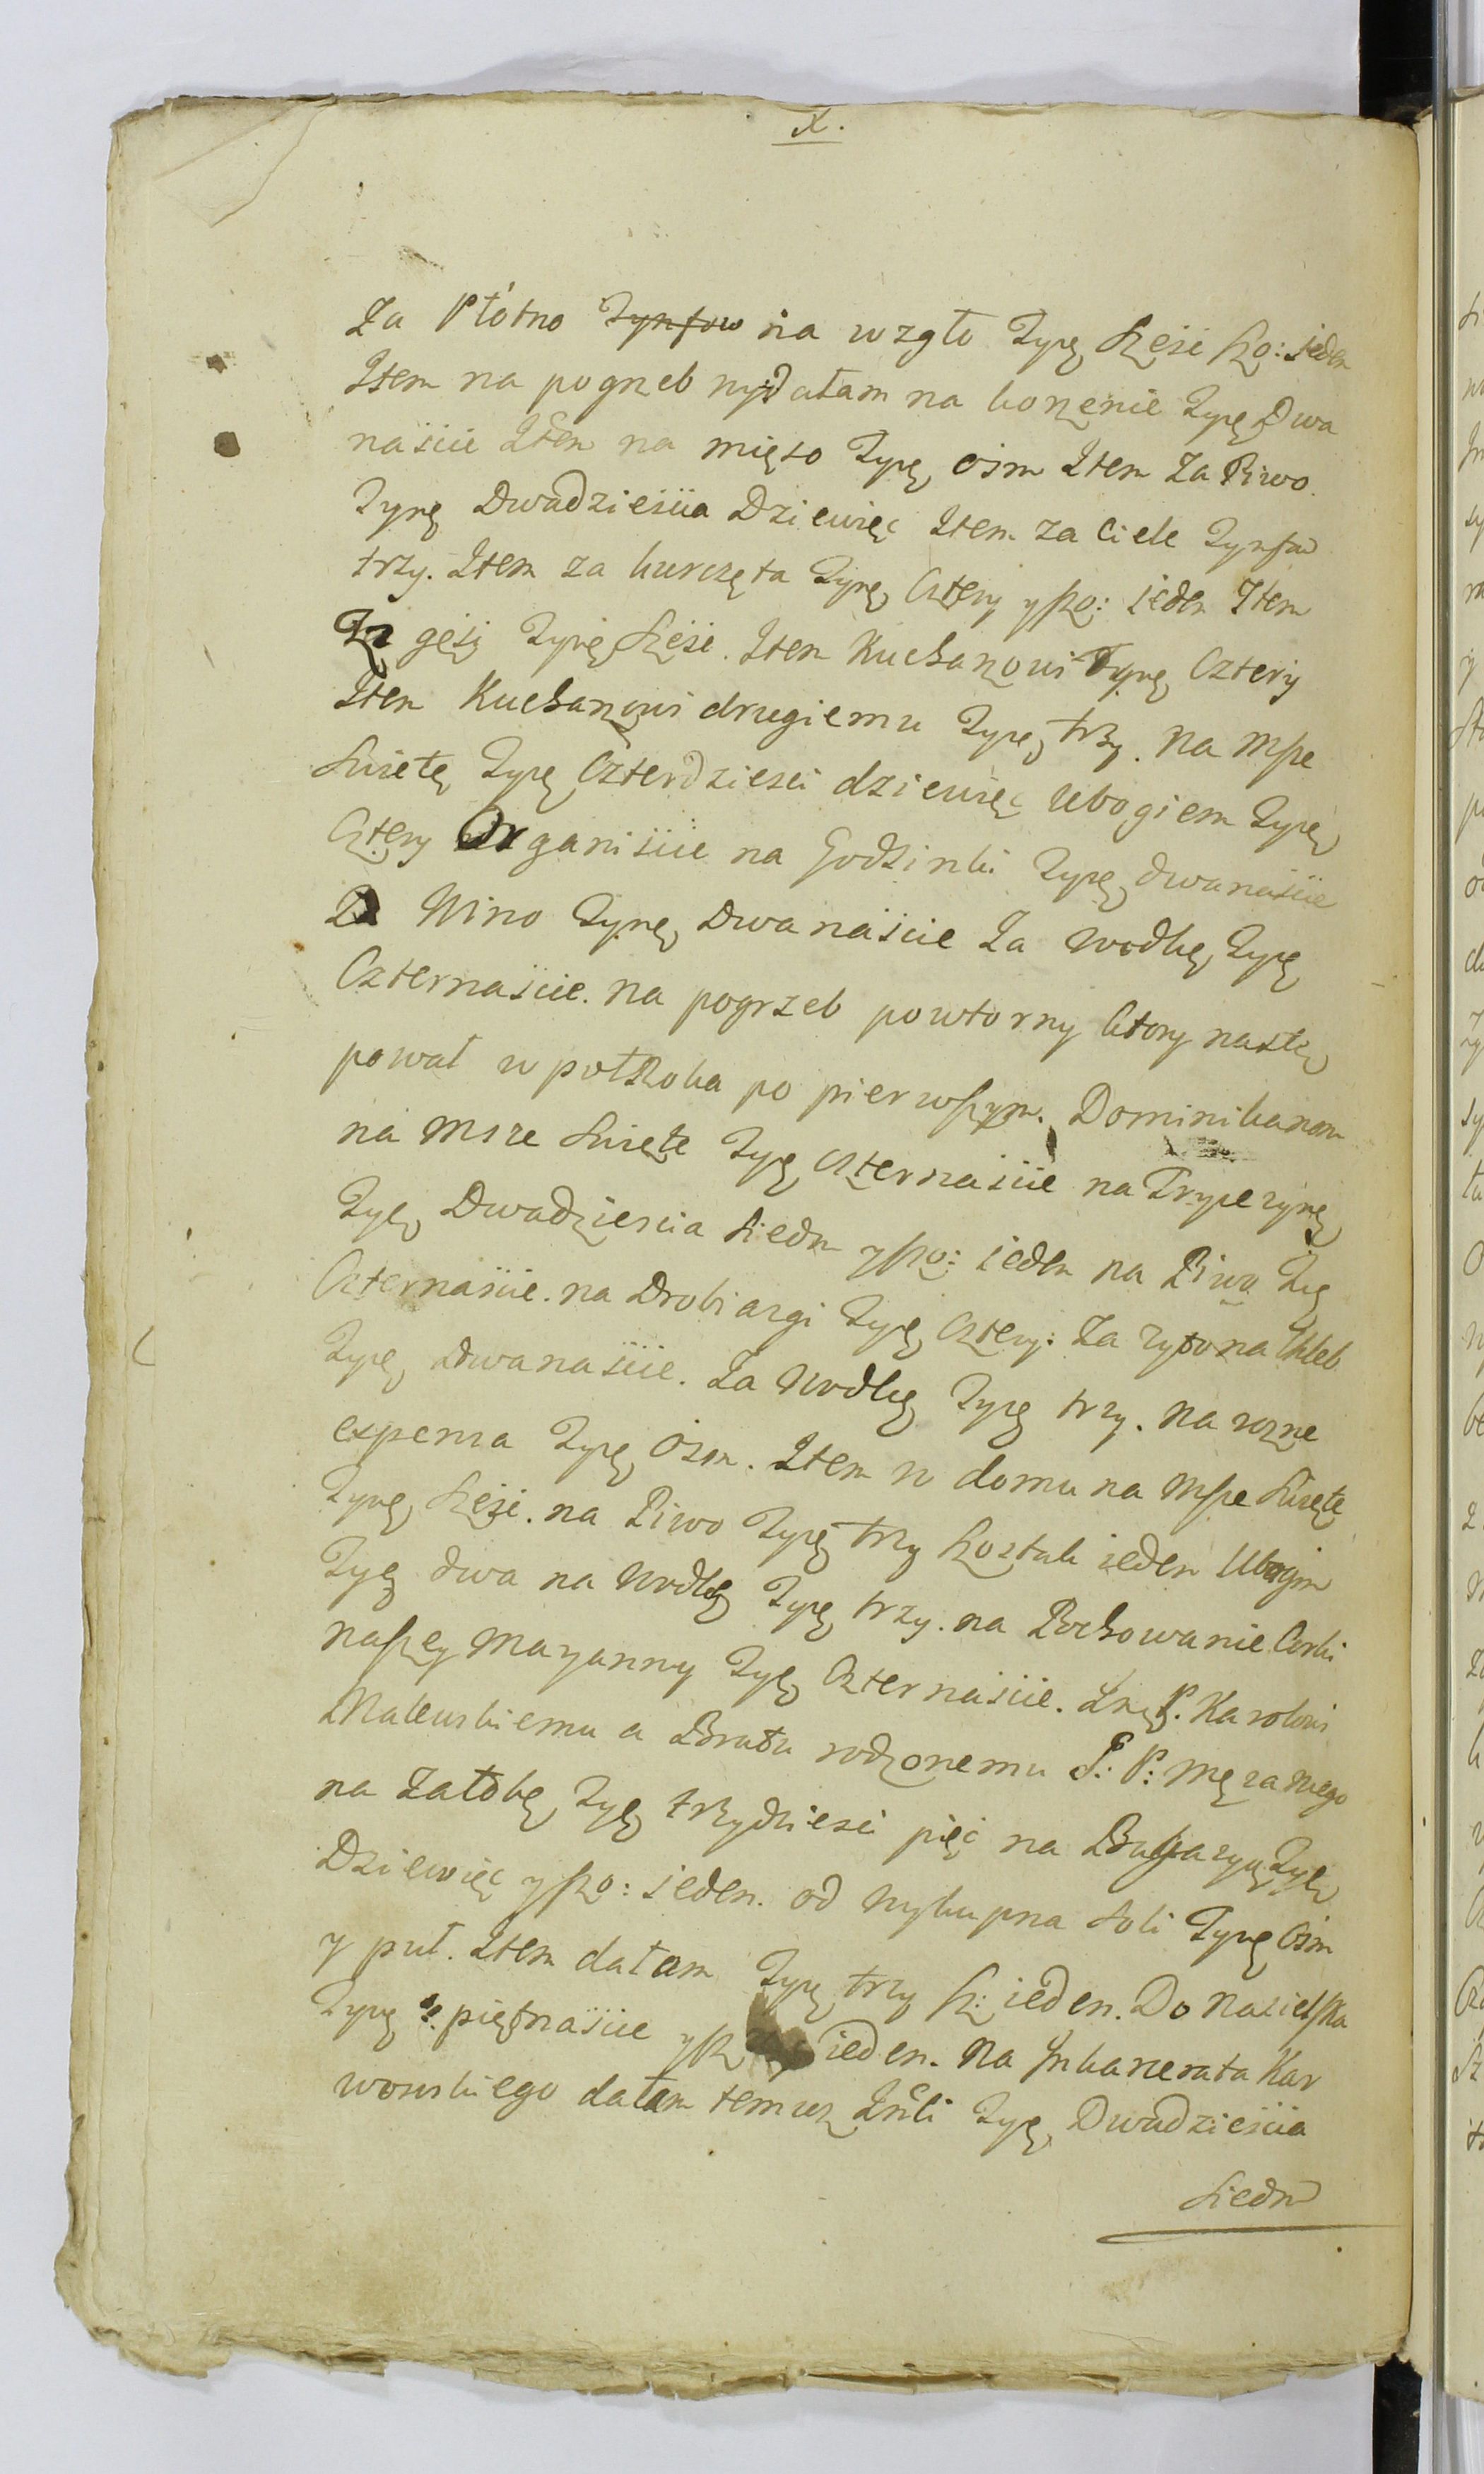 X.
Za Płótno Tynfow na wzgło Tynę Szesc szo: ieden
Item na pogrzeb wydałam na korzenie Tynę Dwa
nascie Item na mięso Tynę osm Item Za Piwo
Tynę Dwadziescia Dziewięc Item za Ciele Tynfow
trzy. Item za kurczęta Tynę Cztery y szo: ieden Item
Za gęsi Tynę Szesc. Item Kucharzowi Tynę Cztery
Item Kucharzowi drugiemu Tynę trzy. na Msze
Swiete Tynę Czterdziesci dziewięc Ubogiem Tynę
Cztery Organiscie na Godzinki Tynę dwanascie
Za Wino Tynę Dwanascie Za wodkę Tynę
Czternascie. na pogrzeb powtorny ktory nastę
powal w poł Roka po pierwszym. Dominikanom
na Msze Swięte Tynę Czternascie na
Tynę Dwadziescia Siedm y szo: ieden na Piwo Tynę
Czternascie. na Drobiazgi Tynę Cztery: Za zyto na Chleb
Tynę Dwanascie. Za Wodkę Tynę trzy. na rozne
expensa Tynę Osm. Item w domu na Msze Swięte
Tynę Szesc. na Piwo Tynę trzy szostak ieden Ubogim
Tynę dwa na Wodkę Tynę trzy. na Pochowanie Corki
naszey Maryanny Tynę Czternascie. P. Karolowi
Malewskiemu a Bratu rodzonemu S: P: Męza mego
na Załobę Tynę trzydziesci pięc na Tynę
Dziewięc y szo: ieden. od wykupna soli Tynę Osm
y puł. Item dałam Tynę trzy sz: ieden. Do Nasielska
Tynę piętnascie y sz ieden. Na Inkarcerata Kar
wowskiego dałam temuz Tynę Dwadziescia
Siedm